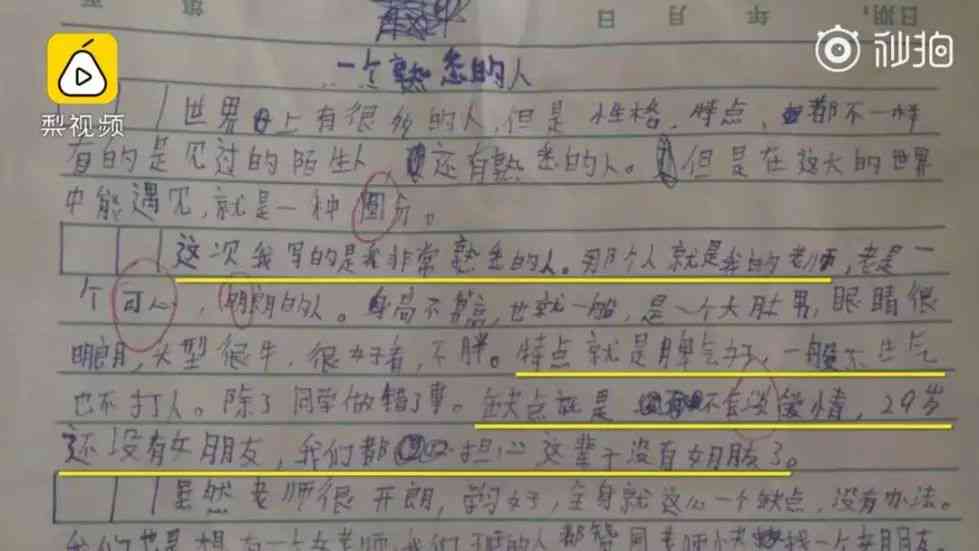 日期: 年 月 日
梨视频
秒拍
一个熟悉的人
世界上有很多的人,但是性格、特点,都不一样
有的是见过的陌生人 还有熟悉的人。但是在这大的世界
中能遇见,就是一种圆分。
这次我写的是我非常熟悉的人。那个人就是我的老师,老是一
个可心,明朗的人。身高不算高,也就一般,是一个大肚男,眼睛很
明朗,大型很牛,很好看,不胖。特点就是脾气好,一般不生气
也不打人。除了同学做错了事。缺点就是 不会谈爱情,29岁
还没有女朋友,我们都 担心这辈子没有女朋友了。
虽然老师很开朗,学习好,全身就这么一个缺点,没有办法。
我们也是想有一个女老师,我们 的人都 老师 找一个女朋友。